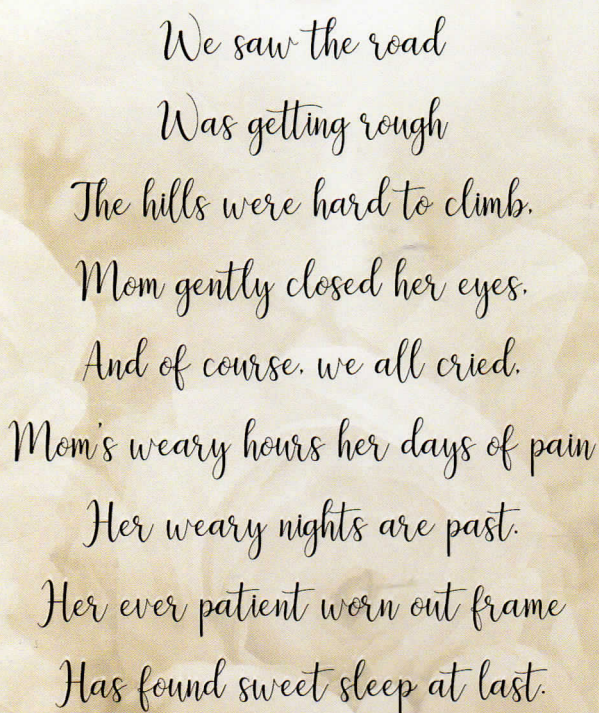 We saw the road
Was getting rough
The hills were hard to climb,
Mom gently closed her eyes,
And of course, we all cried,
Mom's weary hours her days of pain
Her weary nights are past.
Her ever patient worn out frame
Has found sweet sleep at last.